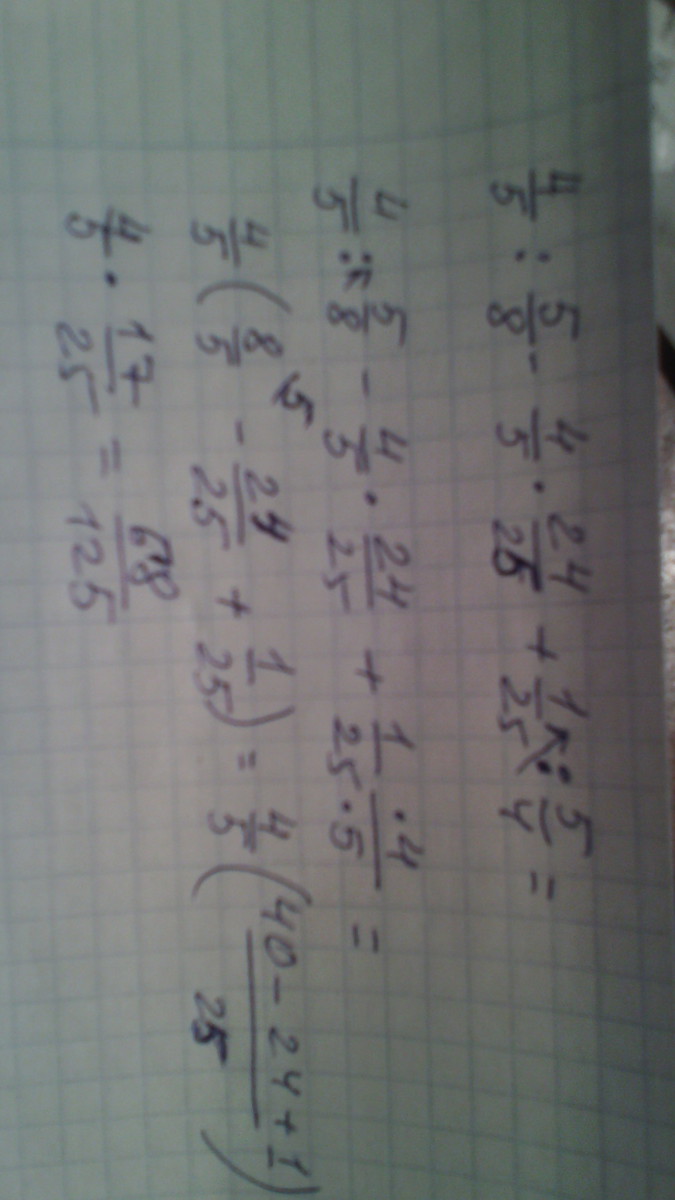 4/5 : 5/8 - 4/5 · 24/25 + 1/25 : 5/4 =
4/5 : 5/8 - 4/5 · 24/25 + 1/25 · 4/5 =
4/5 ( 8/5 - 24/25 + 1/25 ) = 4/5 ( (40 - 24 + 1)/25 )
4/5 · 17/25 = 68/125